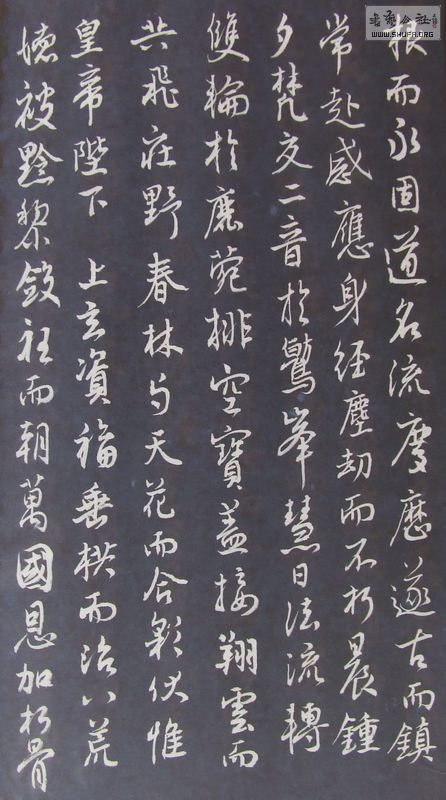 根而永固道名流慶歷遂古而鎮
常赴感應身經塵劫而不朽晨鍾
夕梵交二音於鷲峯慧日法流轉
雙輪於鹿菀排空寶蓋接翔雲而
共飛莊野春林與天花而合彩伏惟
皇帝陛下 上玄資福垂拱而治八荒
德被黔黎斂衽而朝萬國恩加朽骨
書藝公社
www.SHUFA.ORG